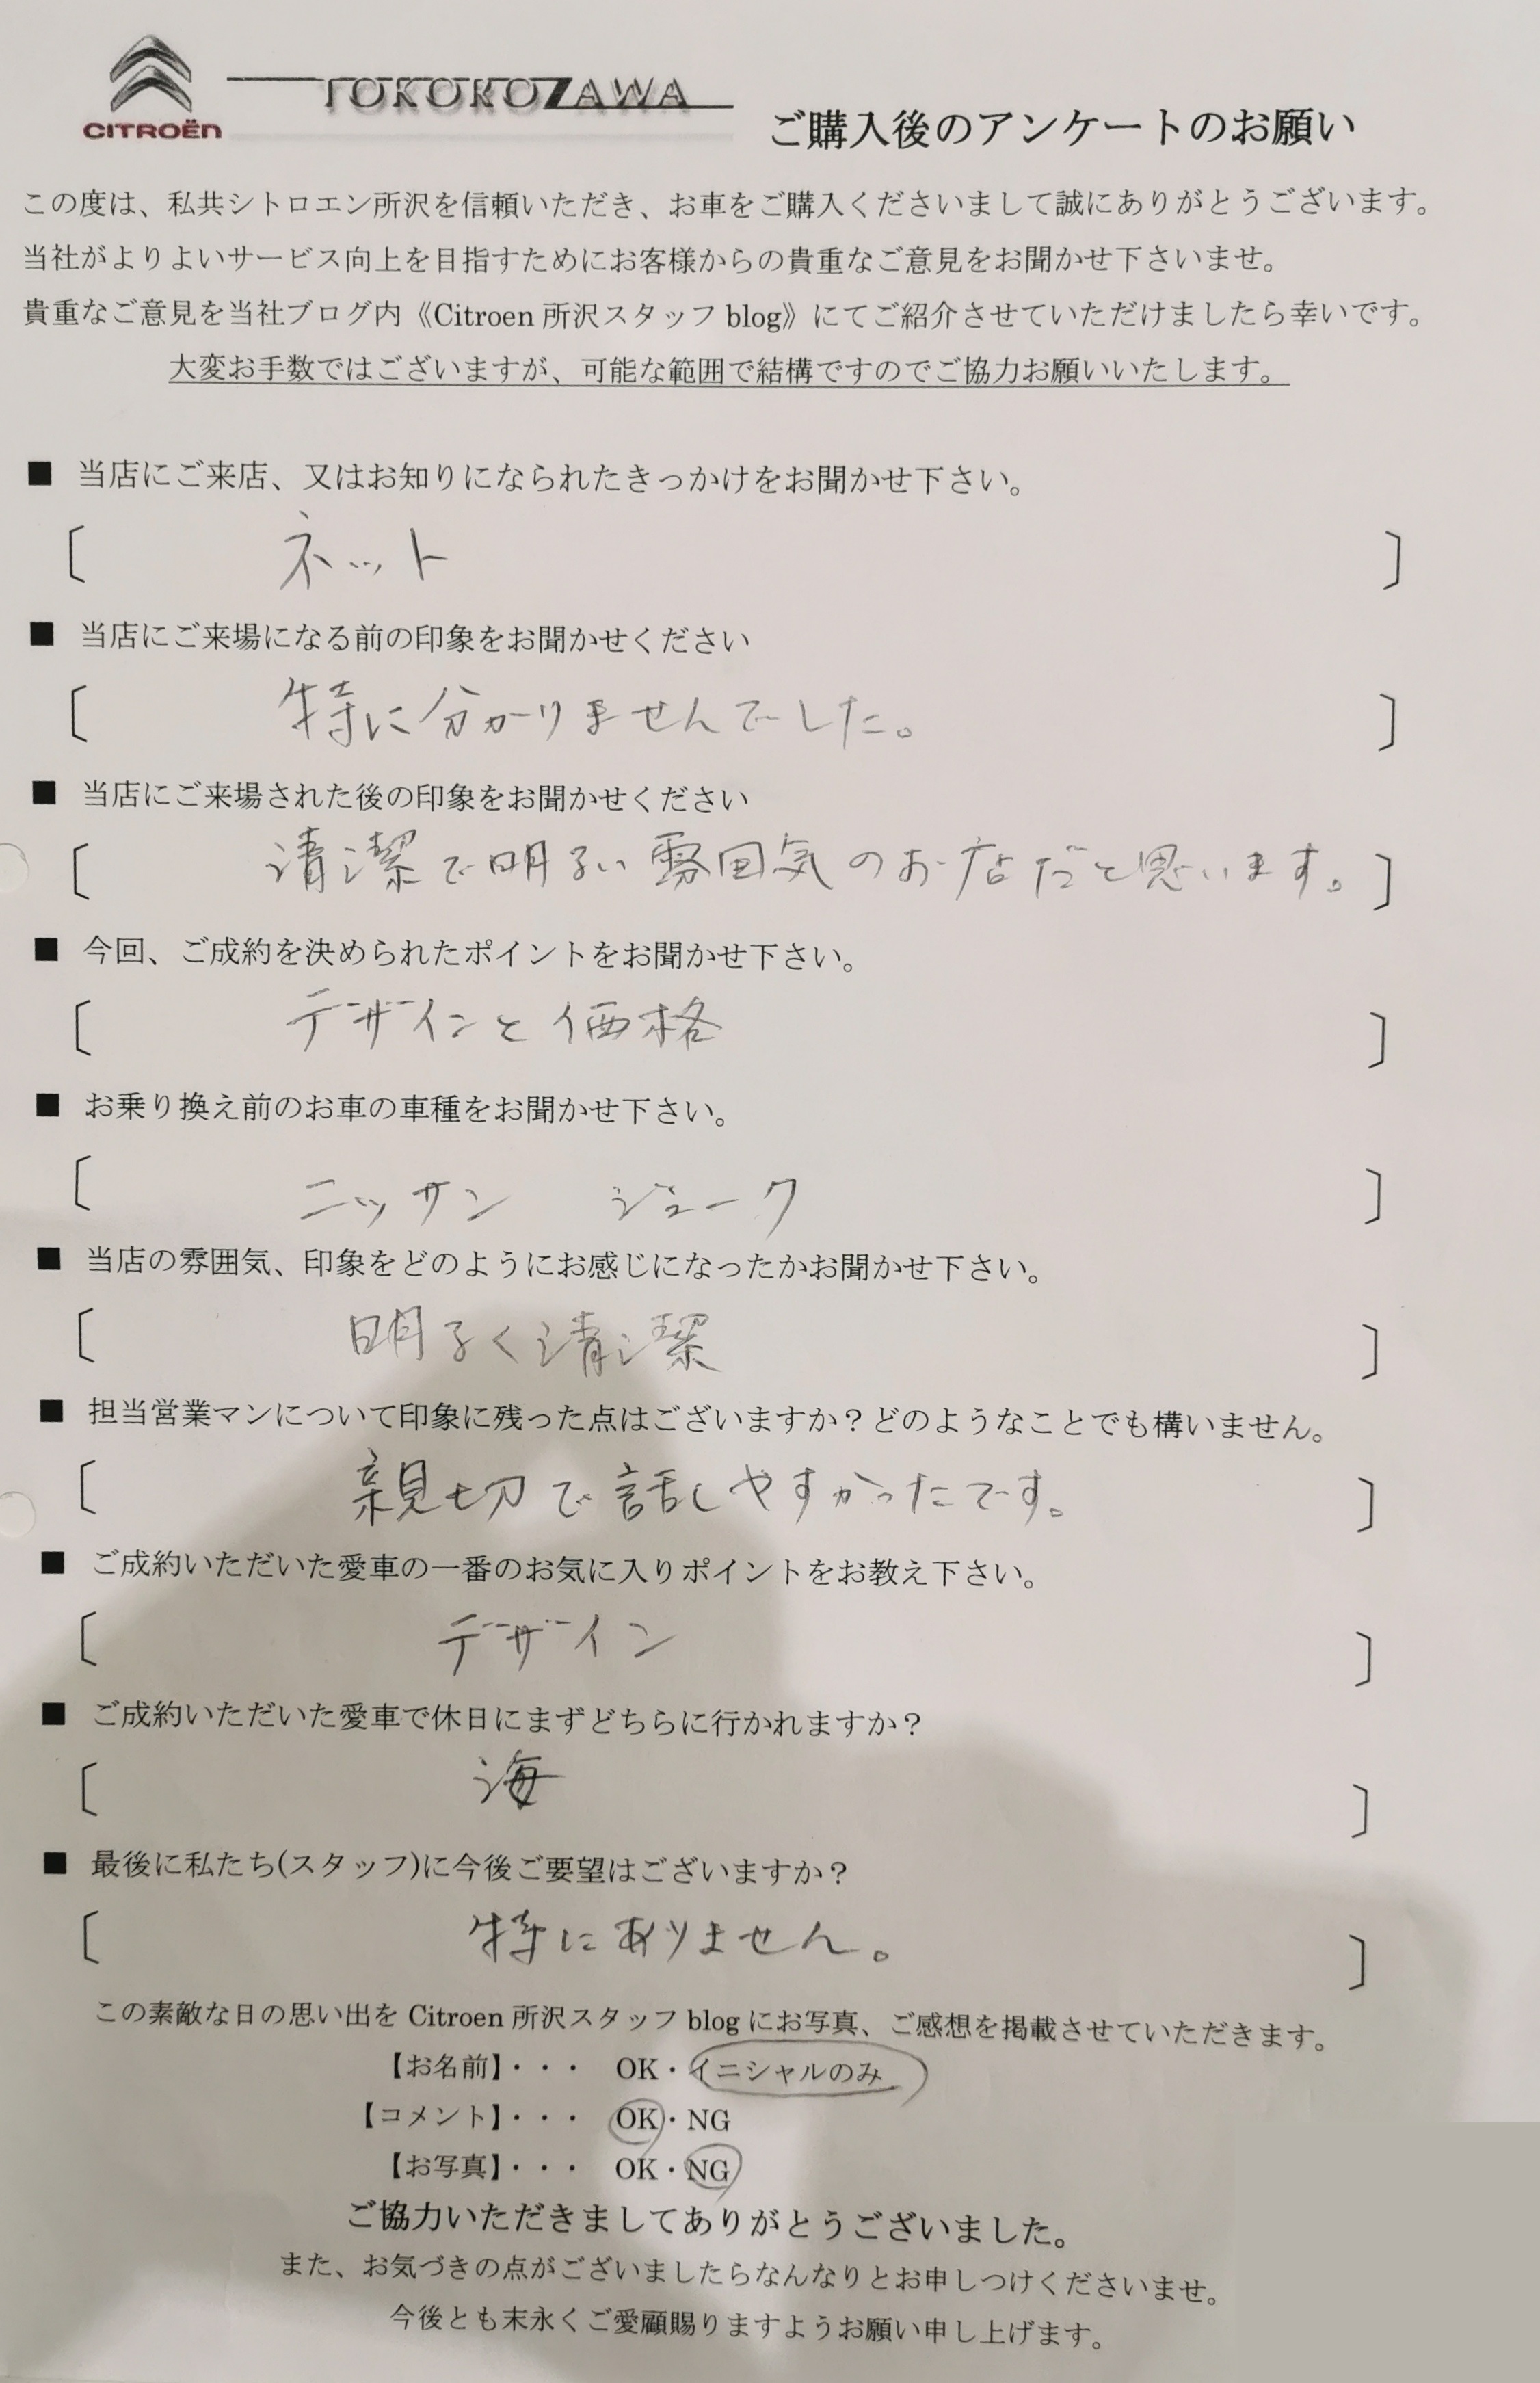 CITROËN
TOKOROZAWA
ご購入後のアンケートのお願い
この度は、私共シトロエン所沢を信頼いただき、お車をご購入くださいまして誠にありがとうございます。
当社がよりよいサービス向上を目指すためにお客様からの貴重なご意見をお聞かせ下さいませ。
貴重なご意見を当社ブログ内《Citroen 所沢スタッフ blog》にてご紹介させていただけましたら幸いです。
大変お手数ではございますが、可能な範囲で結構ですのでご協力お願いいたします。
■ 当店にご来店、又はお知りになられたきっかけをお聞かせ下さい。
〔 ネット 〕
■ 当店にご来場になる前の印象をお聞かせください
〔 特に分かりませんでした。 〕
■ 当店にご来場された後の印象をお聞かせください
〔 清潔で明るい雰囲気のお店だと思います。 〕
■ 今回、ご成約を決められたポイントをお聞かせ下さい。
〔 デザインと価格 〕
■ お乗り換え前のお車の車種をお聞かせ下さい。
〔 ニッサン ジューク 〕
■ 当店の雰囲気、印象をどのようにお感じになったかお聞かせ下さい。
〔 明るく清潔 〕
■ 担当営業マンについて印象に残った点はございますか？どのようなことでも構いません。
〔 親切で話しやすかったです。 〕
■ ご成約いただいた愛車の一番のお気に入りポイントをお教え下さい。
〔 デザイン 〕
■ ご成約いただいた愛車で休日にまずどちらに行かれますか？
〔 海 〕
■ 最後に私たち(スタッフ)に今後ご要望はございますか？
〔 特にありません。 〕
この素敵な日の思い出を Citroen 所沢スタッフ blog にお写真、ご感想を掲載させていただきます。
【お名前】・・・ OK・イニシャルのみ
【コメント】・・・ OK・NG
【お写真】・・・ OK・NG
ご協力いただきましてありがとうございました。
また、お気づきの点がございましたらなんなりとお申しつけくださいませ。
今後とも末永くご愛顧賜りますようお願い申し上げます。